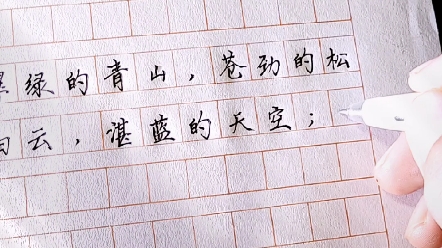 绿的青山，苍劲的松
白云，湛蓝的天空；